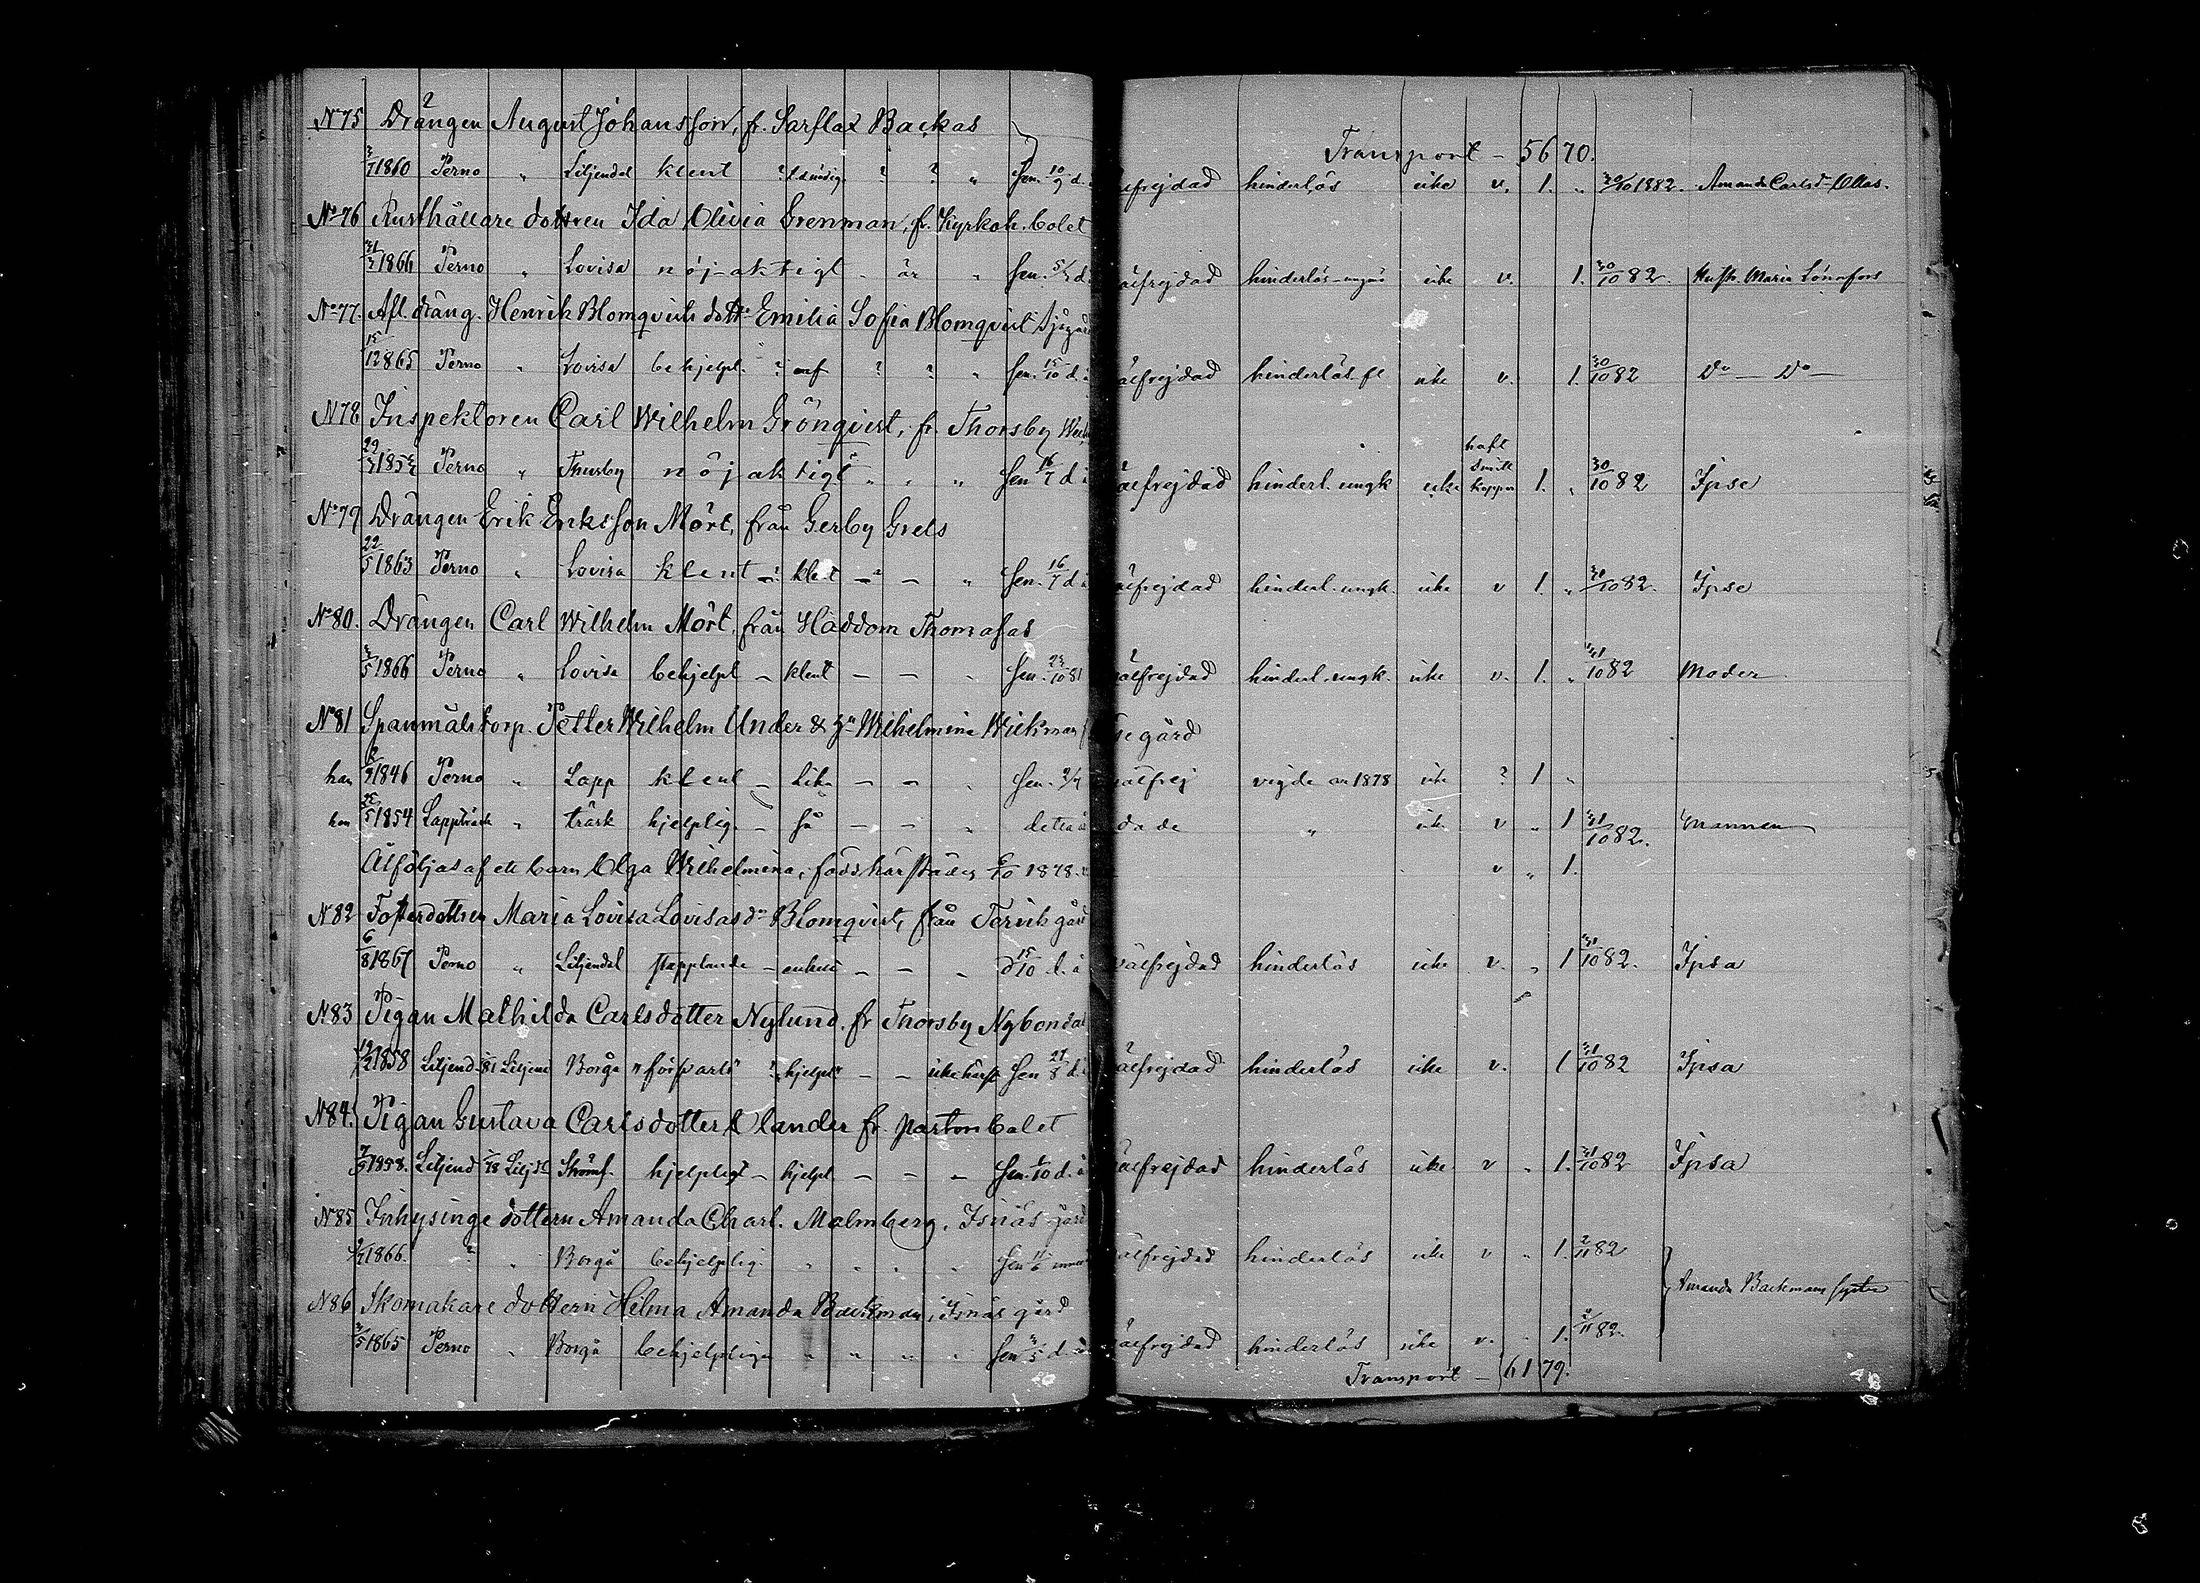 No 75 Drängen August Johansson, fr. Sarflax Backas
Transport - 56 70.
1860 Perno " Liljendal klent ? ? ? " Sen. 10/9 d. älfrejdad hinderlös icke v. 1. " 30/10 1882. Amanda Carlsd-Ollas.
No 76 Rusthållare dottren Ida Olivia Grenman, fr. Kyrkoh. bolet
1866 Perno " Lovisa nöjaktigt är " Sen. d. älfrejdad hinderlös icke v. 1. 30/10 82. Hustr. Maria Lönnfors
No 77. Afl. dräng. Henrik Blomqvists dottr Emilia Sofia Blomqvist
15/12 865 Perno " Lovisa behjelpl. ? ? ? " Sen. 15/10 d. älfrejdad hinderlös icke v. 1. 30/10 82 Do - Do -
No 78 Inspektoren Carl Wilhelm Grönqvist, fr. Thorsby
haft
Perno " Thorsby nöjaktigt " " " Sen 16/7 d älfrejdad hinderl. ungk icke koppor 1. " 30/10 82 Ipse
No 79 Drängen Erik Eriksson Mört, från Gerby Grels
22/5 1863 Perno " Lovisa klent - ? klent - - " Sen. 16/7 d älfrejdad hinderl. ungk. icke v 1. " 30/10 82. Ipse
No 80. Drängen Carl Wilhelm Mört, från Häddom Thomasas
1866 Perno " Lovisa behjelpl - klent - - " Sen. 81 älfrejdad hinderl. ungk. icke v. 1. " 31/10 82 Moder
No 81 Spanmålstorp. Petter Wilhelm Under & Hu Wilhelmina Wickman gård
han 1846 Perno " Lapp klent - lika - - " Sen. älfrej vigde 1878 icke ? 1 "
hon 1854 Lappträsk " träsk hjelplig - så - - " detta da de " icke v " 1 31/10 82. Mannen
Åtföljas af ett barn Olga Wilhelmina, född härstädes 1878. v " 1.
No 82 Fosterdottren Maria Lovisa Lovisasdr Blomqvist, från Tervik gård
6/8 1867 Perno " Liljendal stapplande - enkelt - - " 15/10 d. å älfrejdad hinderlös icke v. " 1 31/10 82. Ipsa
No 83 Pigan Mathilda Carlsdotter Nylund. fr Thorsby Nybondas
1858 Liljend. 81 Liljend Borgå " försvarl" ? hjelpl - - Sen d. älfrejdad hinderlös icke v. 1 31/10 82 Ipsa
No 84. Pigan Gustava Carlsdotter Olander fr. pastorsbolet
1858. Liljend 78 Liljd Strömf. hjelpligt - hjelpl - - - Sen. d. å älfrejdad hinderlös icke v " 1. 31/10 82 Ipsa
No 85 Inhysinge dottern Amanda Charl. Malmberg. Isnäs gård
1866. ? " Borgå behjelplig. " " " " Sen älfrejdad hinderlös icke v " 1. 2/11 82
Amanda Backmans syster
No 86 Skomakare dottern Hilma Amanda Backman, Isnäs gård
1865 Perno " Borgå behjelpliga " " " " Sen d. å älfrejdad hinderlös icke v. " 1. 2/11 82.
Transport - 61 79.